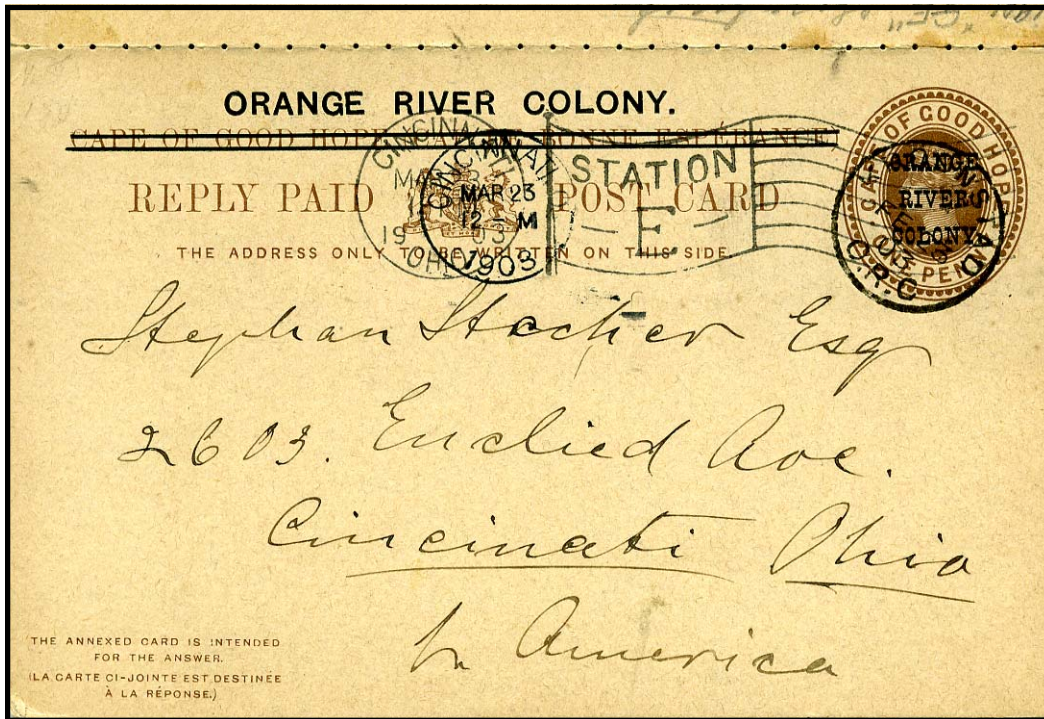 ORANGE RIVER COLONY.
CAPE OF GOOD HOPE BONNE ESPÉRANCE
REPLY PAID POST CARD
THE ADDRESS ONLY TO BE WRITTEN ON THIS SIDE
CINCINNATI
MAR
19
OHIO
CINCINNATI
MAR 23
12 - M
1903
STATION
E
CAPE OF GOOD HOPE
ONE PENNY
ORANGE
RIVER
COLONY.
O.R.C
Stephan Stocher Esq
2603. Enclied Ave.
Cincinati Ohio
America
THE ANNEXED CARD IS INTENDED
FOR THE ANSWER.
(LA CARTE CI-JOINTE EST DESTINÉE
À LA RÉPONSE.)